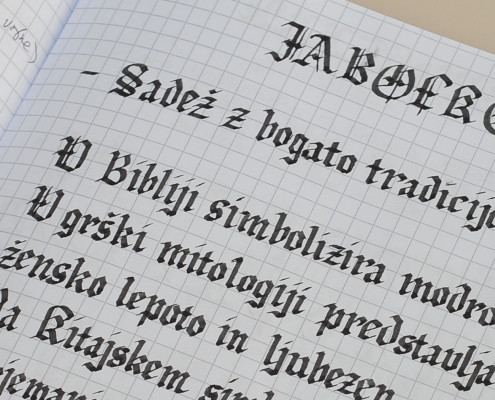 JABOLKO
- Sadež z bogato tradicijo
V Bibliji simbolizira modro
V grški mitologiji predstavlja
žensko lepoto in ljubezen
Na Kitajskem sim